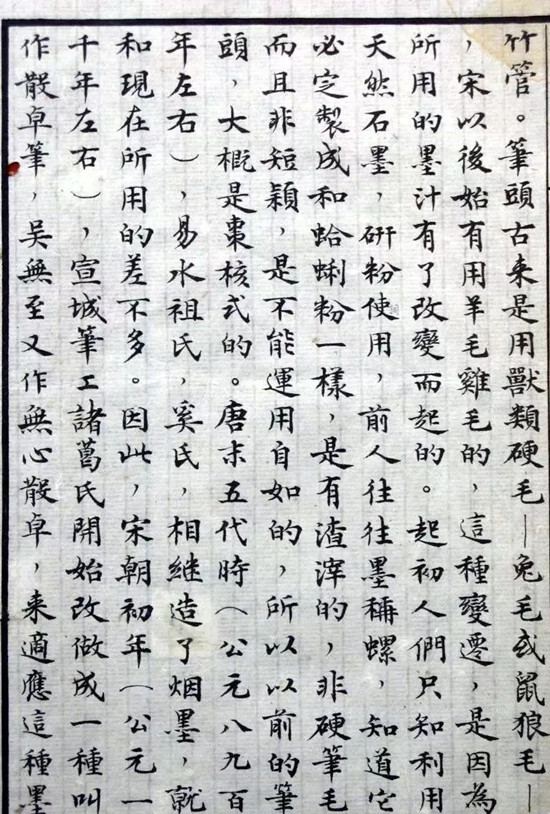 竹管。筆頭古来是用獸類硬毛—兔毛或鼠狼毛—
，宋以後始有用羊毛雞毛的，這種變遷，是因為
所用的墨汁有了改變而起的。起初人們只知利用
天然石墨，研粉使用，前人往往墨稱螺，知道它
必定製成和蛤蜊粉一樣，是有渣滓的，非硬筆毛
而且非短穎，是不能運用自如的，所以以前的筆
頭，大概是棗核式的。唐末五代時（公元八九百
年左右），易水祖氏，奚氏，相继造了烟墨，就
和現在所用的差不多。因此，宋朝初年（公元一
千年左右），宣城筆工諸葛氏開始改做成一種叫
作散卓筆，吴無至又作無心散卓，来適應這種墨